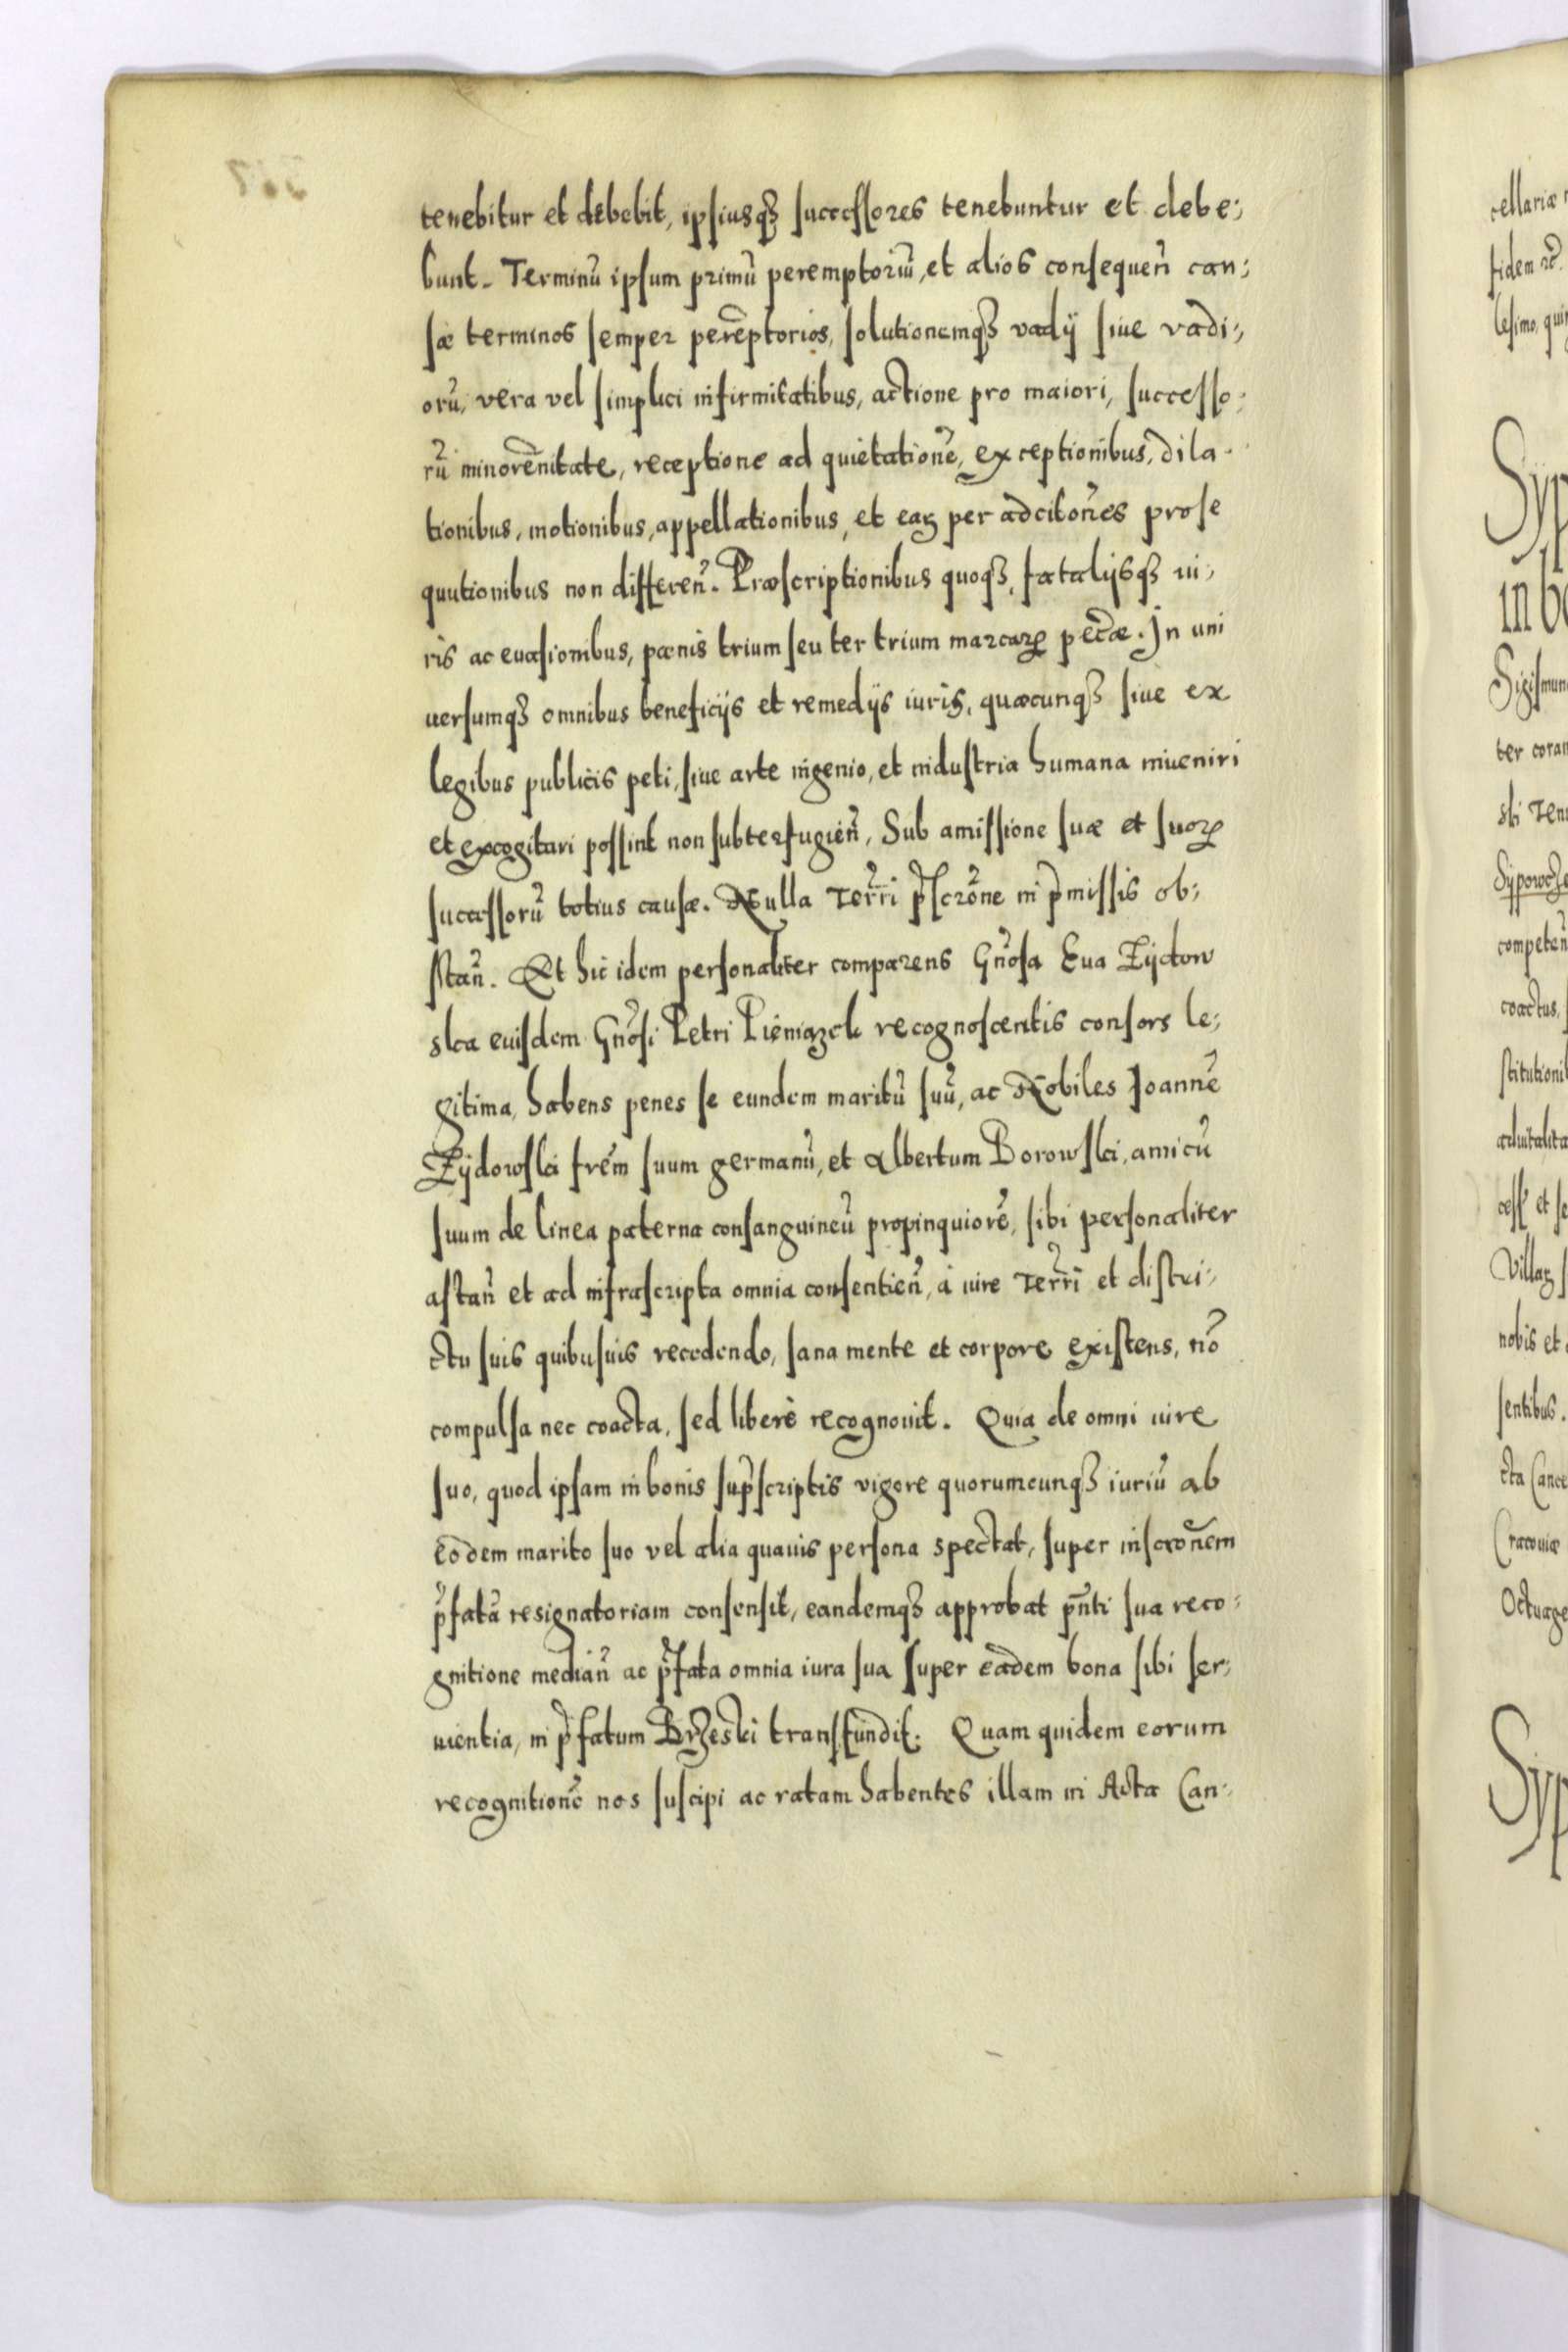 tenebitur et debebit, ipsiusqȝ successores tenebuntur et debe;
bunt. Terminū ipsum primū peremptoriū, et alios consequeñ cau;
sæ terminos semper perēptorios, solutionemqȝ vadij siue vadi;
orū, vera vel simplici infirmitatibus, actione pro maiori, successo;
rū minorēnitate, receptione ad quietationē, exceptionibus, dila-
tionibus, motionibus, appellationibus, et eaꝝ per adcitōnes prose
quutionibus non differeñ. Præscriptionibus quoqȝ, fatalijsqȝ iu;
ris ac euasionibus, pænis trium seu ter trium marcaꝝ pecæ. In uni
uersumqȝ omnibus beneficijs et remedijs iuris, quæcunqȝ siue ex
legibus publicis peti, siue arte ingenio, et industria humana inueniri
et excogitari possint non subterfugieñ, Sub amissione suæ et suoꝝ
successorū totius causæ. Nulla Terrī p̄scrōne in p̄missis ob;
stañ. Et hic idem personaliter comparens Gñosa Eua Zydow
ska euisdem Gñosi Petri Pieniązek recognoscentis consors le;
gitima, habens penes se eundem maritū suū, ac Nobiles Joannē
Zydowski frēm suum germanū, et Albertum Borowski, amicū
suum de linea paterna consanguineū propinquiorē, sibi personaliter
astañ et ad infrascripta omnia consentieñ, à iure Terrī et distri;
ctu suis quibusuis recedendo, sana mente et corpore existens, nō
compulsa nec coacta, sed liberè recognouit. Quia de omni iure
suo, quod ipsam in bonis sup̄scriptis vigore quorumcunqȝ iuriū ab
eodem marito suo vel alia quauis persona spectat, super inscrōnem
p̄fatā resignatoriam consensit, eandemqȝ approbat pn̄ti sua reco;
gnitione mediañ ac p̄fata omnia iura sua super eadem bona sibi ser;
uientia, in p̄fatum Brzeski transfundit. Quam quidem eorum
recognitionē nos suscipi ac ratam habentes illam in Acta Can;